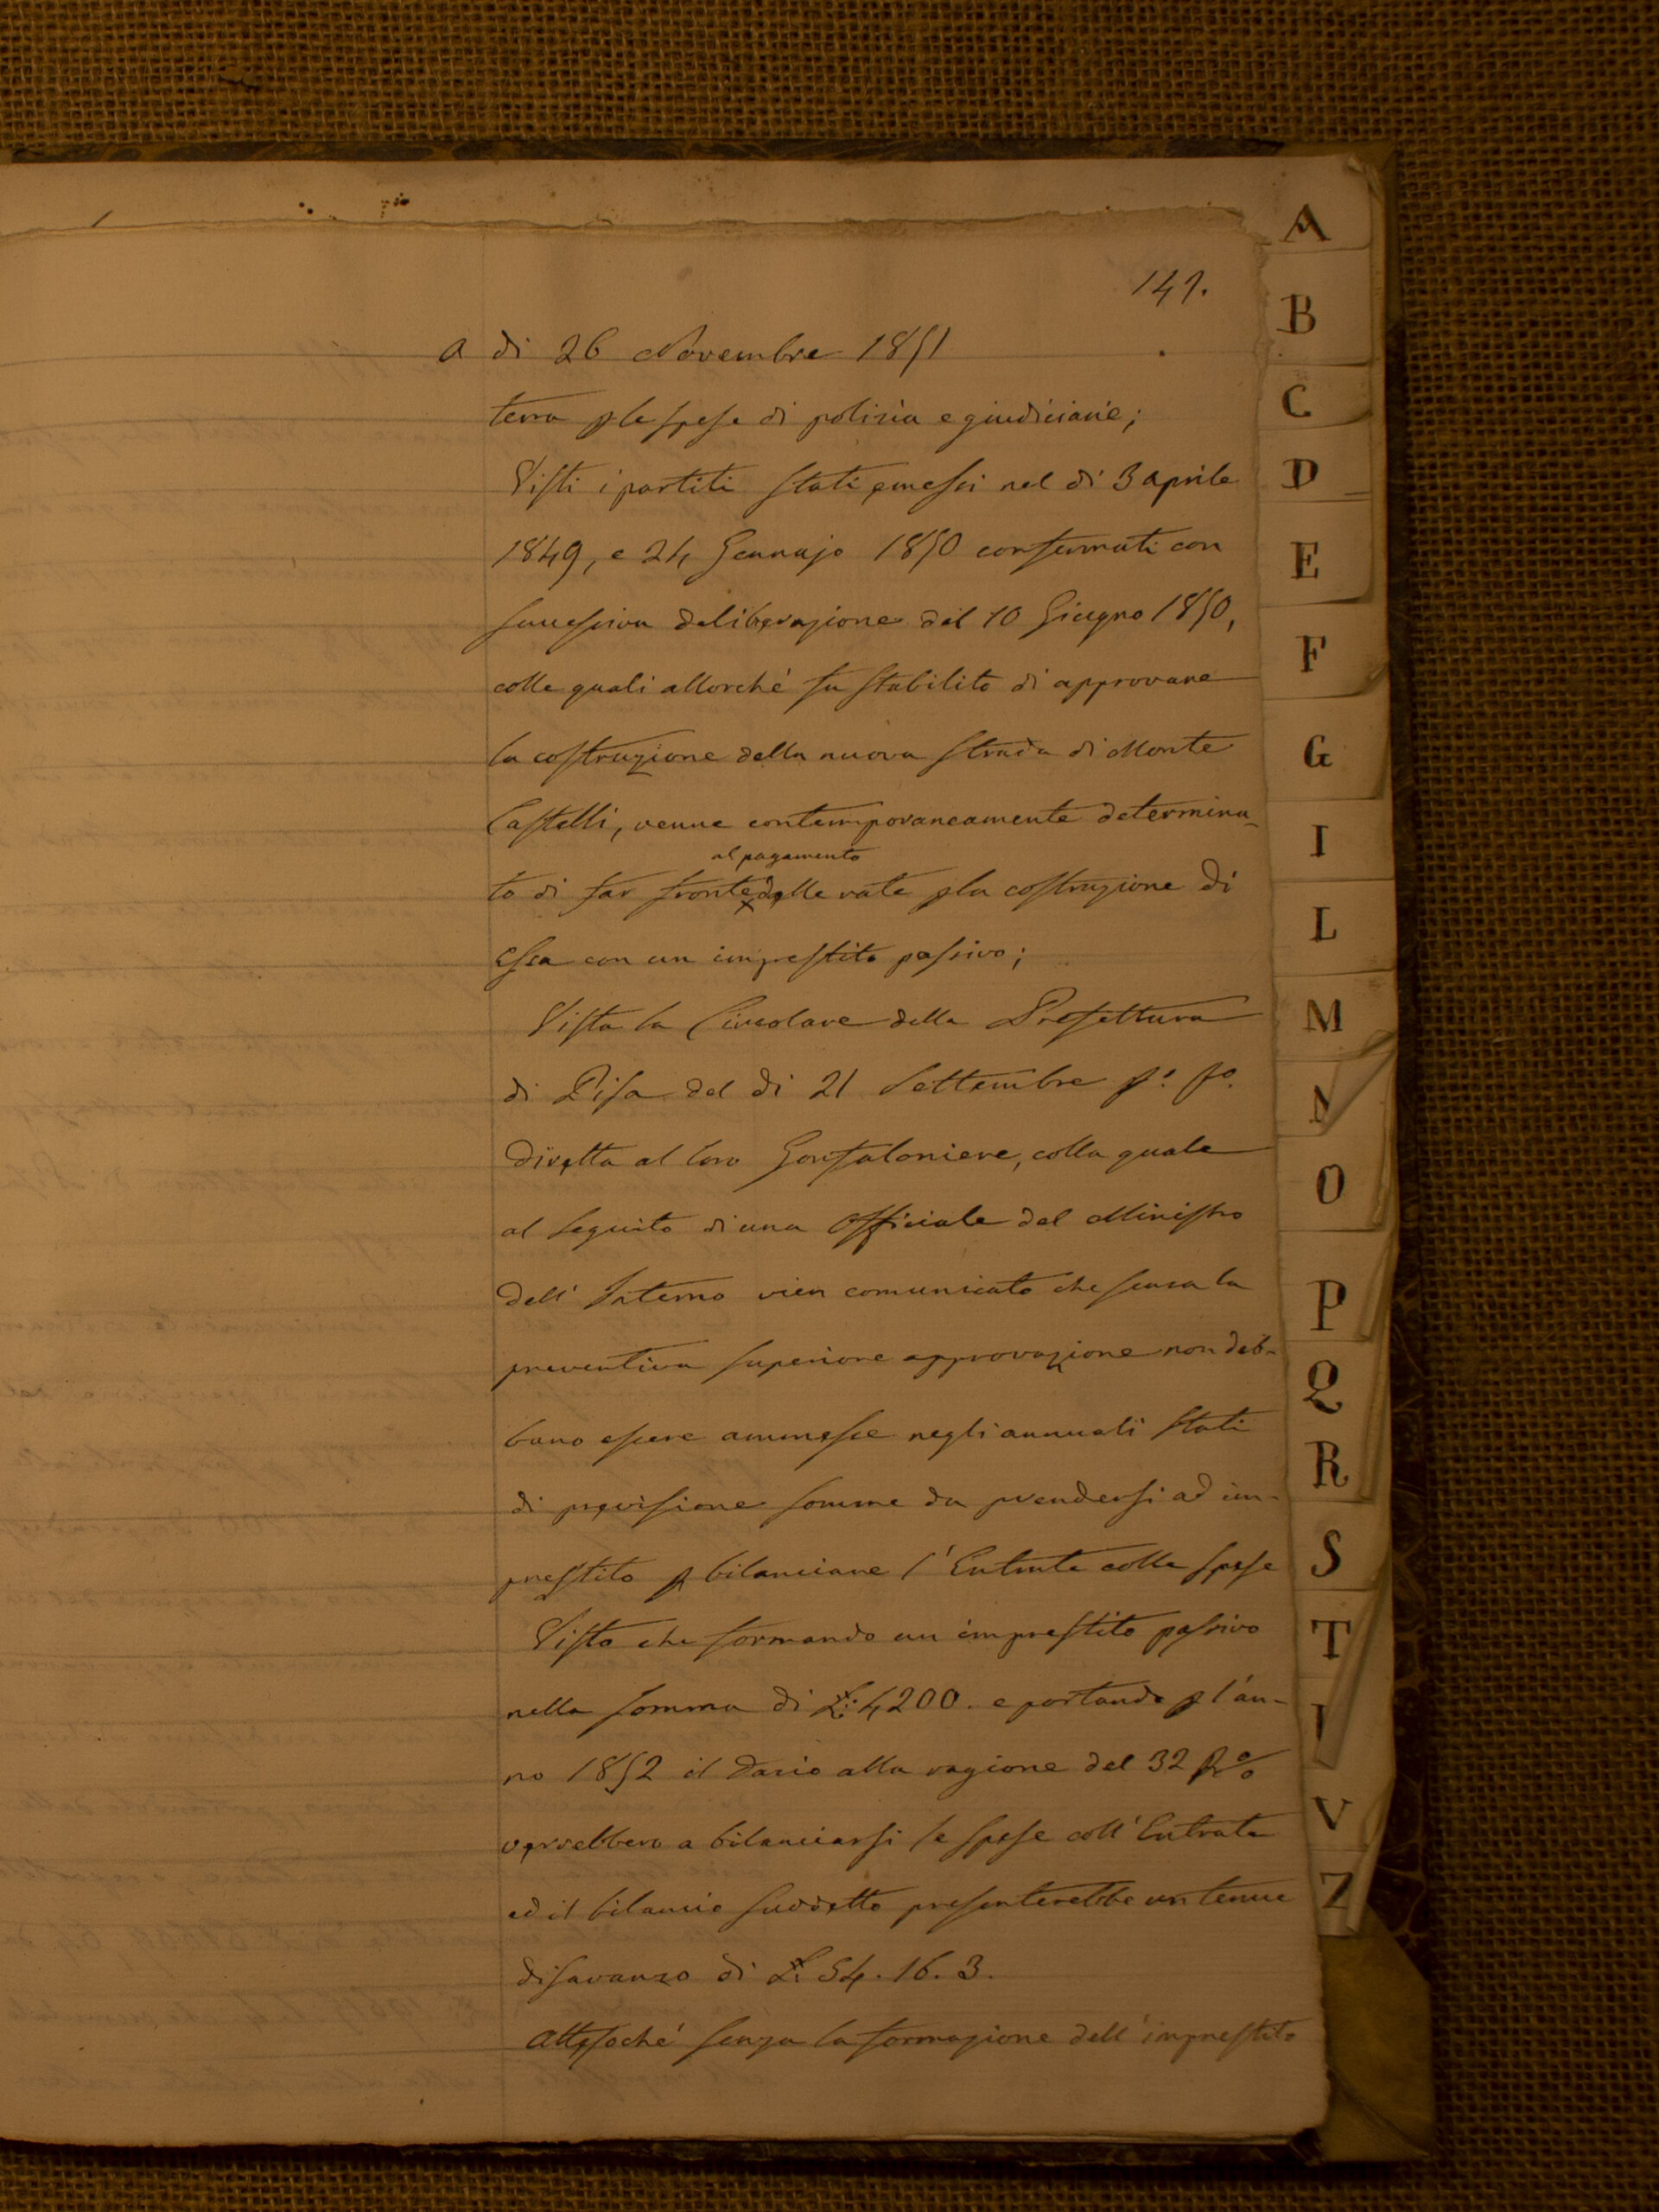 141.
A dì 26 Novembre 1851
terra p le spese di polizia e giudiciarie;
Visti i partiti stati emessi nel dì 3 aprile
1849, e 24 Gennajo 1850 confermati con
successiva deliberazione del 10 Giugno 1850,
colle quali allorchè fu stabilito di approvare
la costruzione della nuova strada di Monte
Castelli, venne contemporaneamente determina-
al pagamento
to di far fronte delle rate p la costruzione di
essa con un imprestito passivo;
Vista la Circolare della Prefettura
di Pisa del dì 21 Settembre p.º p.º
diretta al loro Gonfaloniere, colla quale
al seguito di una Officiale del Ministro
dell' Interno vien comunicato che senza la
preventiva superiore approvazione non deb-
bano essere ammesse negli annuali stati
di previsione somme da prendersi ad im-
prestito p bilanciare l'Entrate colle spese
Visto che formando un imprestito passivo
nella somma di £: 4200. e portando p l'an-
no 1852 il Dazio alla ragione del 32 p%
verrebbero a bilanciarsi le spese coll' Entrate
ed il bilancio suddetto presenterebbe un tenue
disavanzo di £: 54. 16. 3.
Attesochè senza la formazione dell' imprestito
A
B
C
D
E
F
G
I
L
M
N
O
P
Q
R
S
T
V
Z